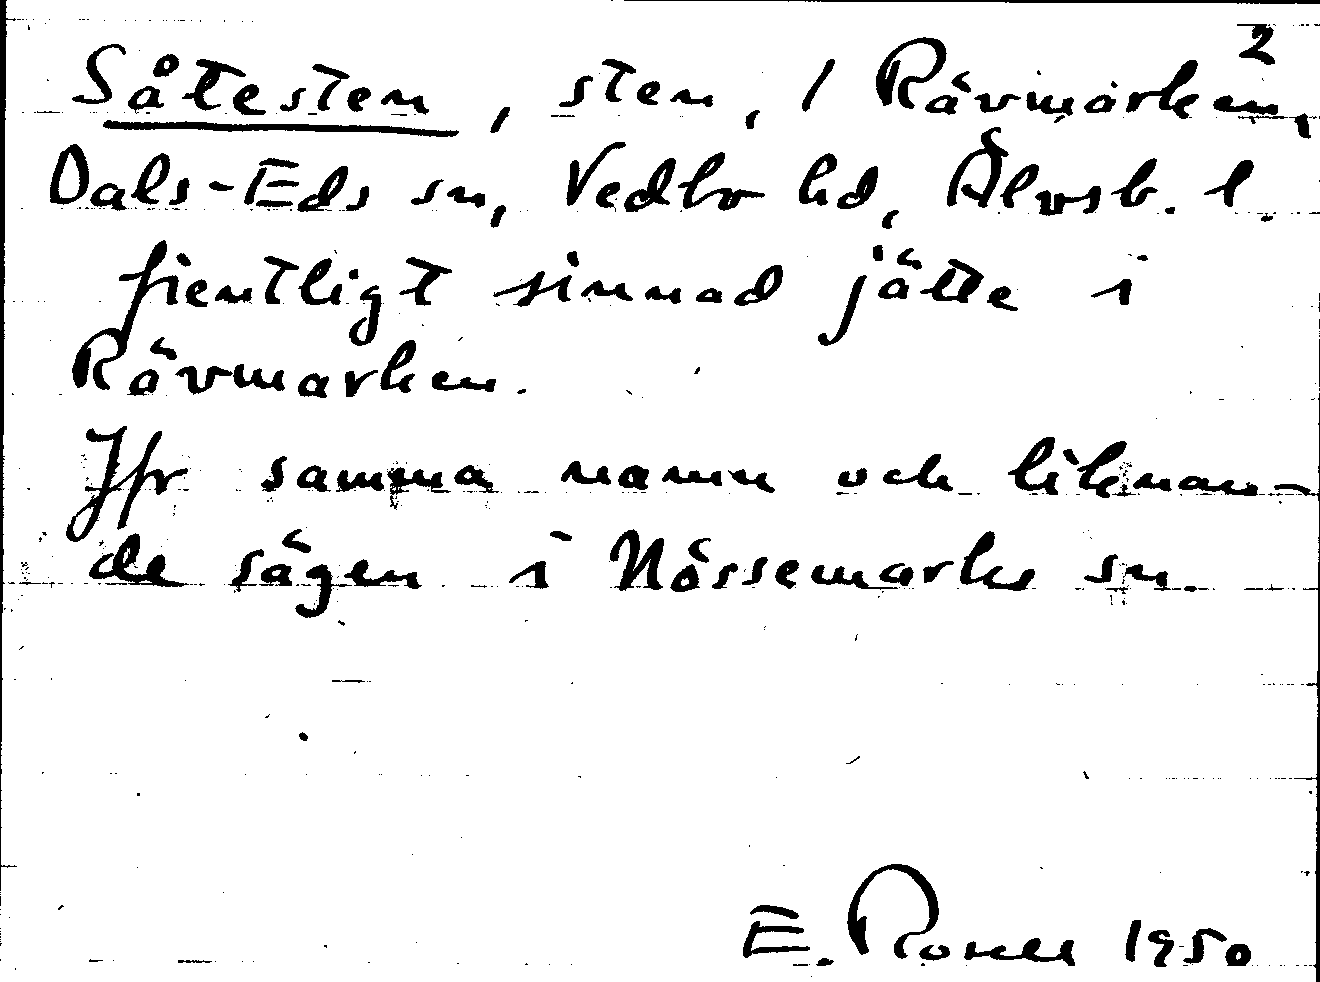 2
Såtesten, sten, / Rävmarken,
Dals-Eds sn, Vedbo hd, Älvsb. l.
fientligt sinnad jätte i
Rävmarken.
Jfr samma namn och liknan-
de sägen i Nössemarks sn.
E. Rosell 1950